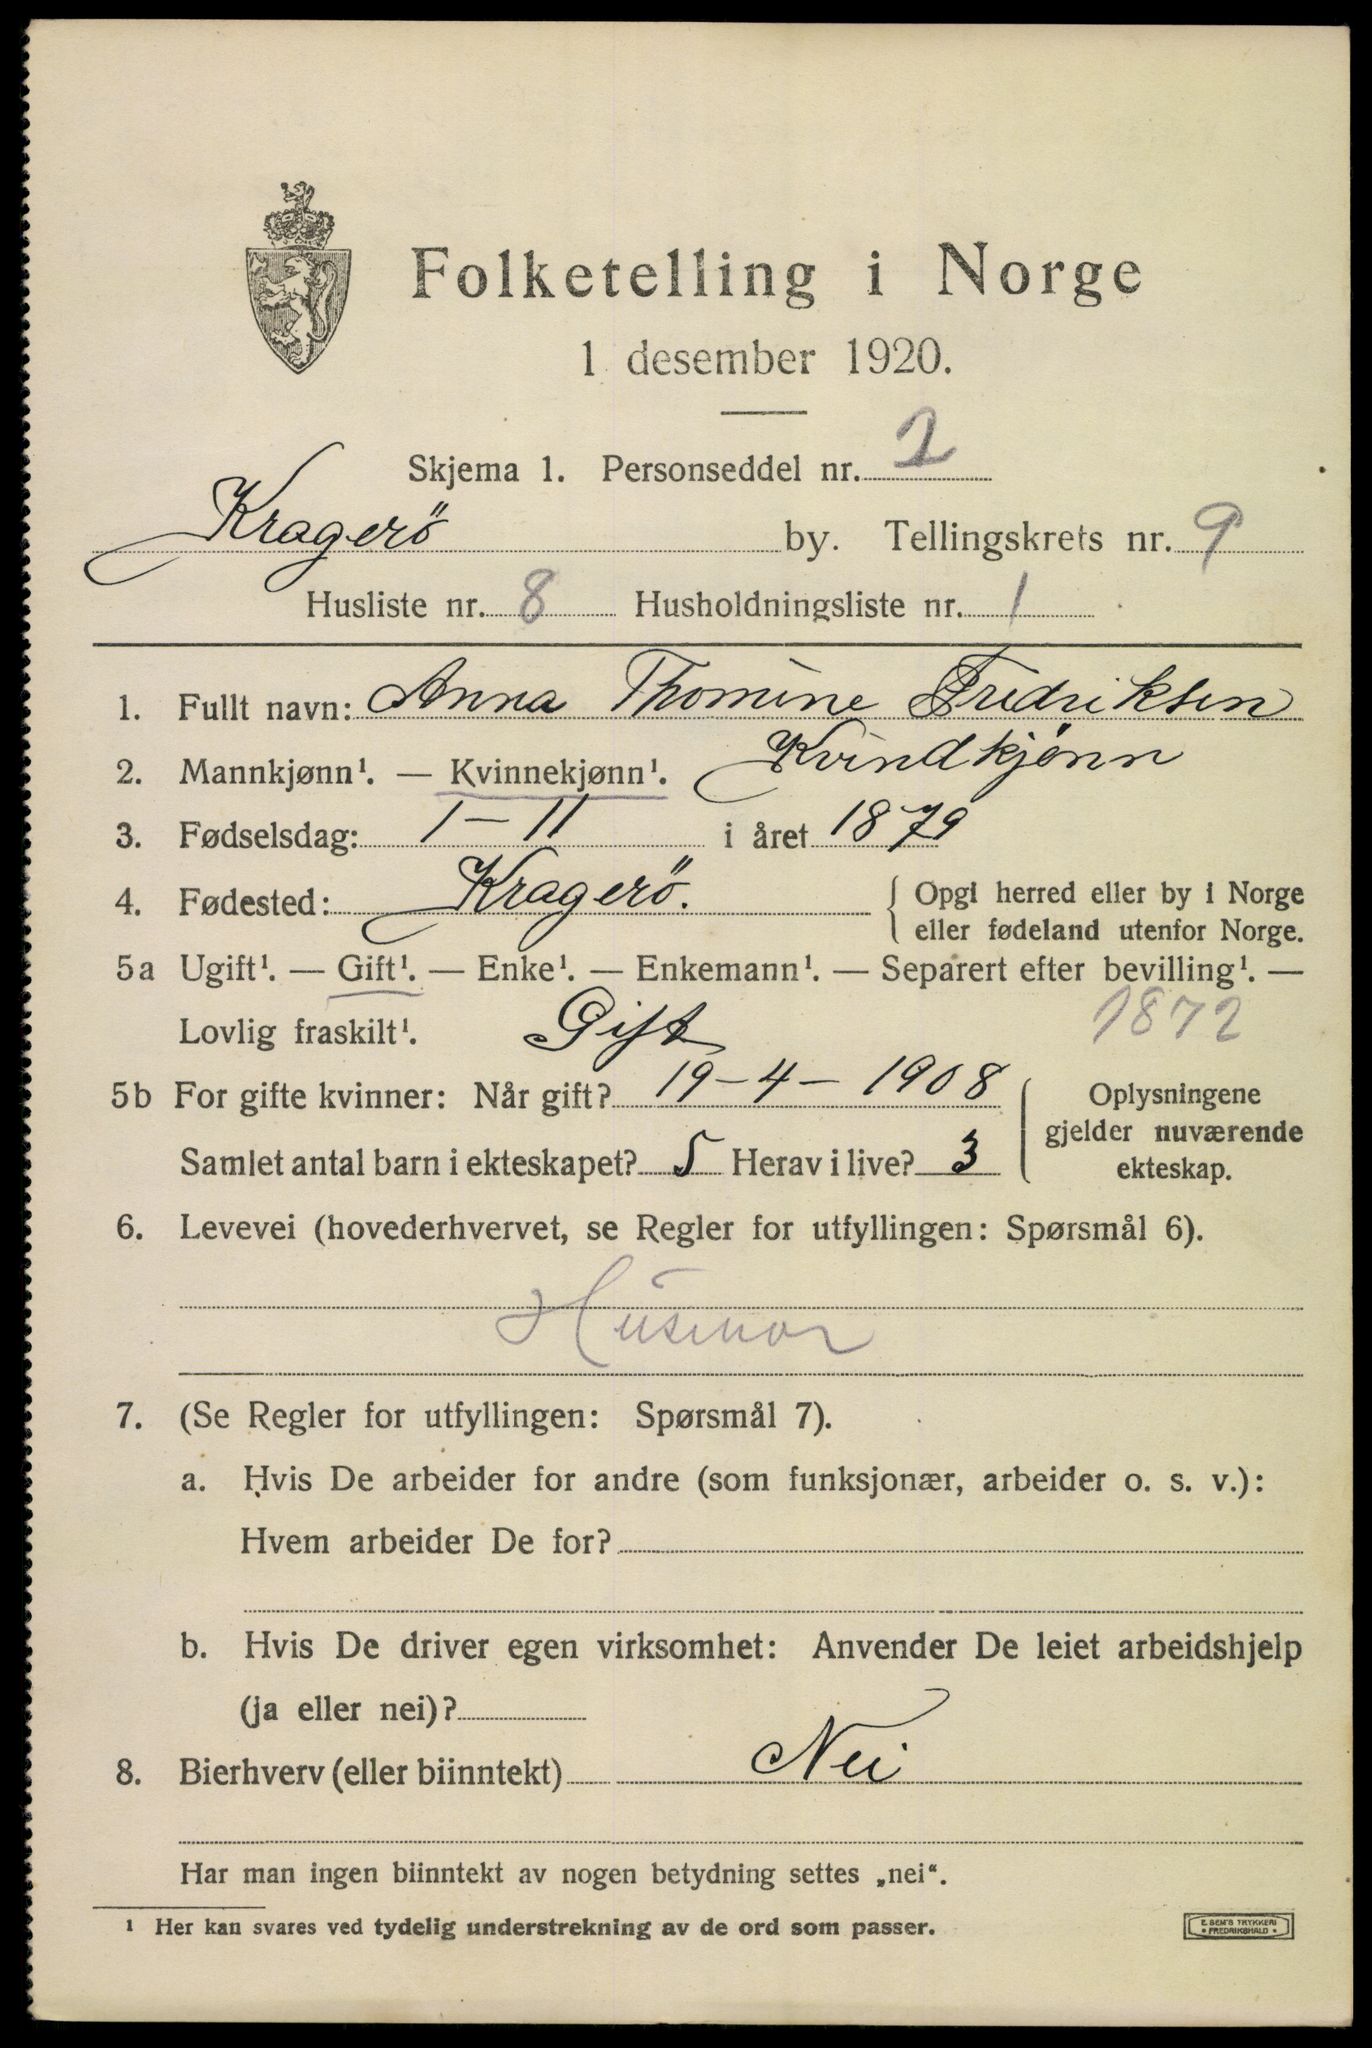 Folketelling i Norge
1 desember 1920.
Skjema 1. Personseddel nr. 2
Kragerö by. Tellingskrets nr. 9
Husliste nr. 8 Husholdningsliste nr. 1
1. Fullt navn: Anna Thomine Fredriksen
2. Mannkjønn¹. — Kvinnekjønn¹. Kvindkjønn
3. Fødselsdag: 1 – 11 i året 1879
4. Fødested: Kragerö. { Opgi herred eller by i Norge
eller fødeland utenfor Norge.
5a Ugift¹. — Gift¹. — Enke¹. — Enkemann¹. — Separert efter bevilling¹. —
Lovlig fraskilt¹. Gift 1872
5b For gifte kvinner: Når gift? 19 – 4 – 1908 Oplysningene
gjelder nuværende
Samlet antal barn i ekteskapet? 5 Herav i live? 3 ekteskap.
6. Levevei (hovederhvervet, se Regler for utfyllingen: Spørsmål 6).
Husmor
7. (Se Regler for utfyllingen: Spørsmål 7).
a. Hvis De arbeider for andre (som funksjonær, arbeider o. s. v.):
Hvem arbeider De for?
b. Hvis De driver egen virksomhet: Anvender De leiet arbeidshjelp
(ja eller nei)?
8. Bierhverv (eller biinntekt) Nei
Har man ingen biinntekt av nogen betydning settes „nei“.
¹ Her kan svares ved tydelig understrekning av de ord som passer.
E. SEM'S TRYKKERI
• FREDRIKSHALD •